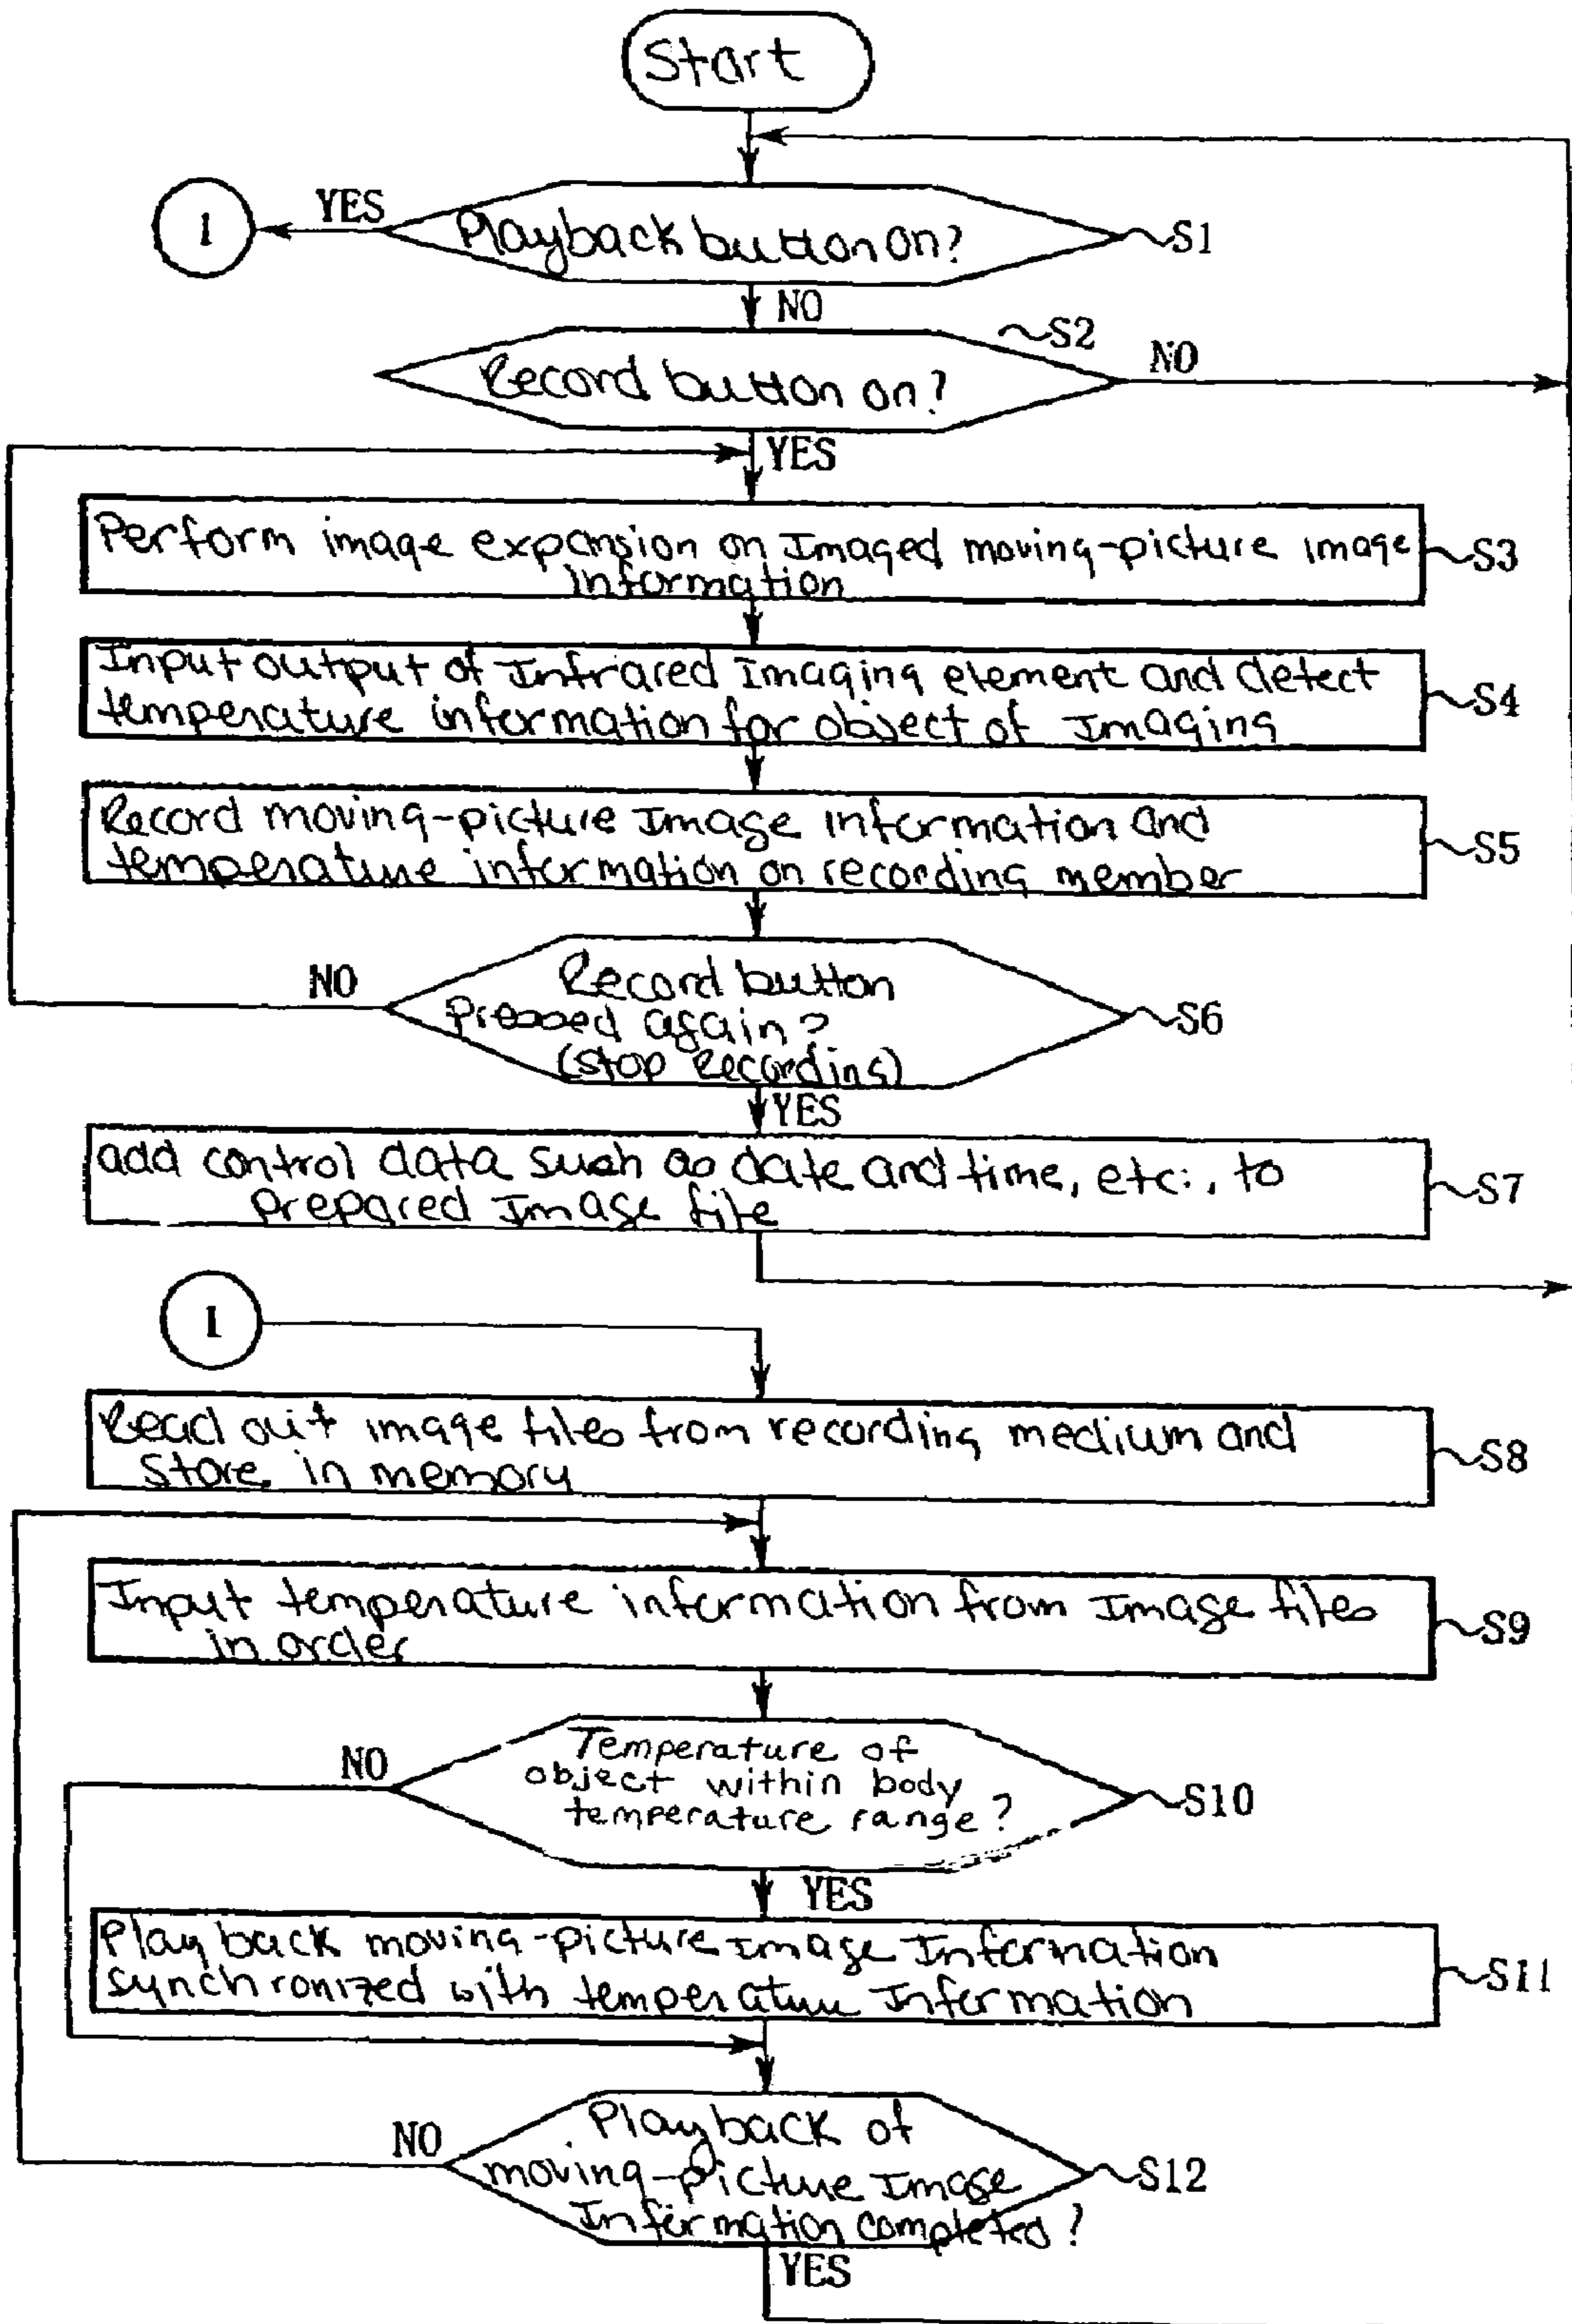 Start
1
YES
Playback button on?
S1
NO
S2
Record button on?
NO
YES
Perform image expansion on Imaged moving-picture image
information
S3
Input output of Infrared Imaging element and detect
temperature information for object of Imaging
S4
Record moving-picture Image Information and
temperature information on recording member
S5
NO
Record button
Pressed again?
(Stop Recording)
S6
YES
add control data such as date and time, etc., to
prepared Image file
S7
1
Read out image files from recording medium and
Store in memory
S8
Input temperature information from Image files
in order
S9
NO
Temperature of
object within body
temperature range?
S10
YES
Playback moving-picture Image Information
synchronized with temperature Information
S11
NO
Playback of
moving-picture Image
Information completed?
S12
YES